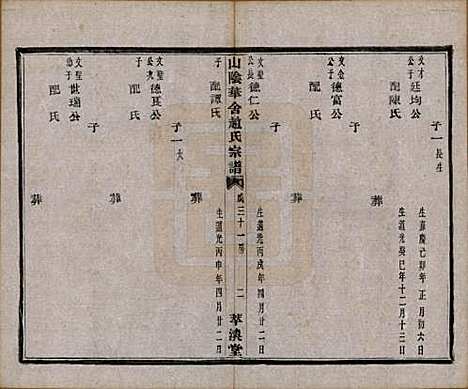 文才公子
廷珣公
生嘉慶己卯年正月初六日
配陳氏
生道光癸巳年十二月十三日
子一
長生
葬
文金公子
德富公
配氏
子
葬
文聖公長子
德仁公
生道光丙戌年四月廿二日
配譚氏
生道光丙申年四月廿二日
山陰華舍趙氏宗譜
三十一
二
萃渙堂
子一
大
葬
文聖公次子
德豆公
配氏
子
葬
文聖公幼子
世瑞公
配氏